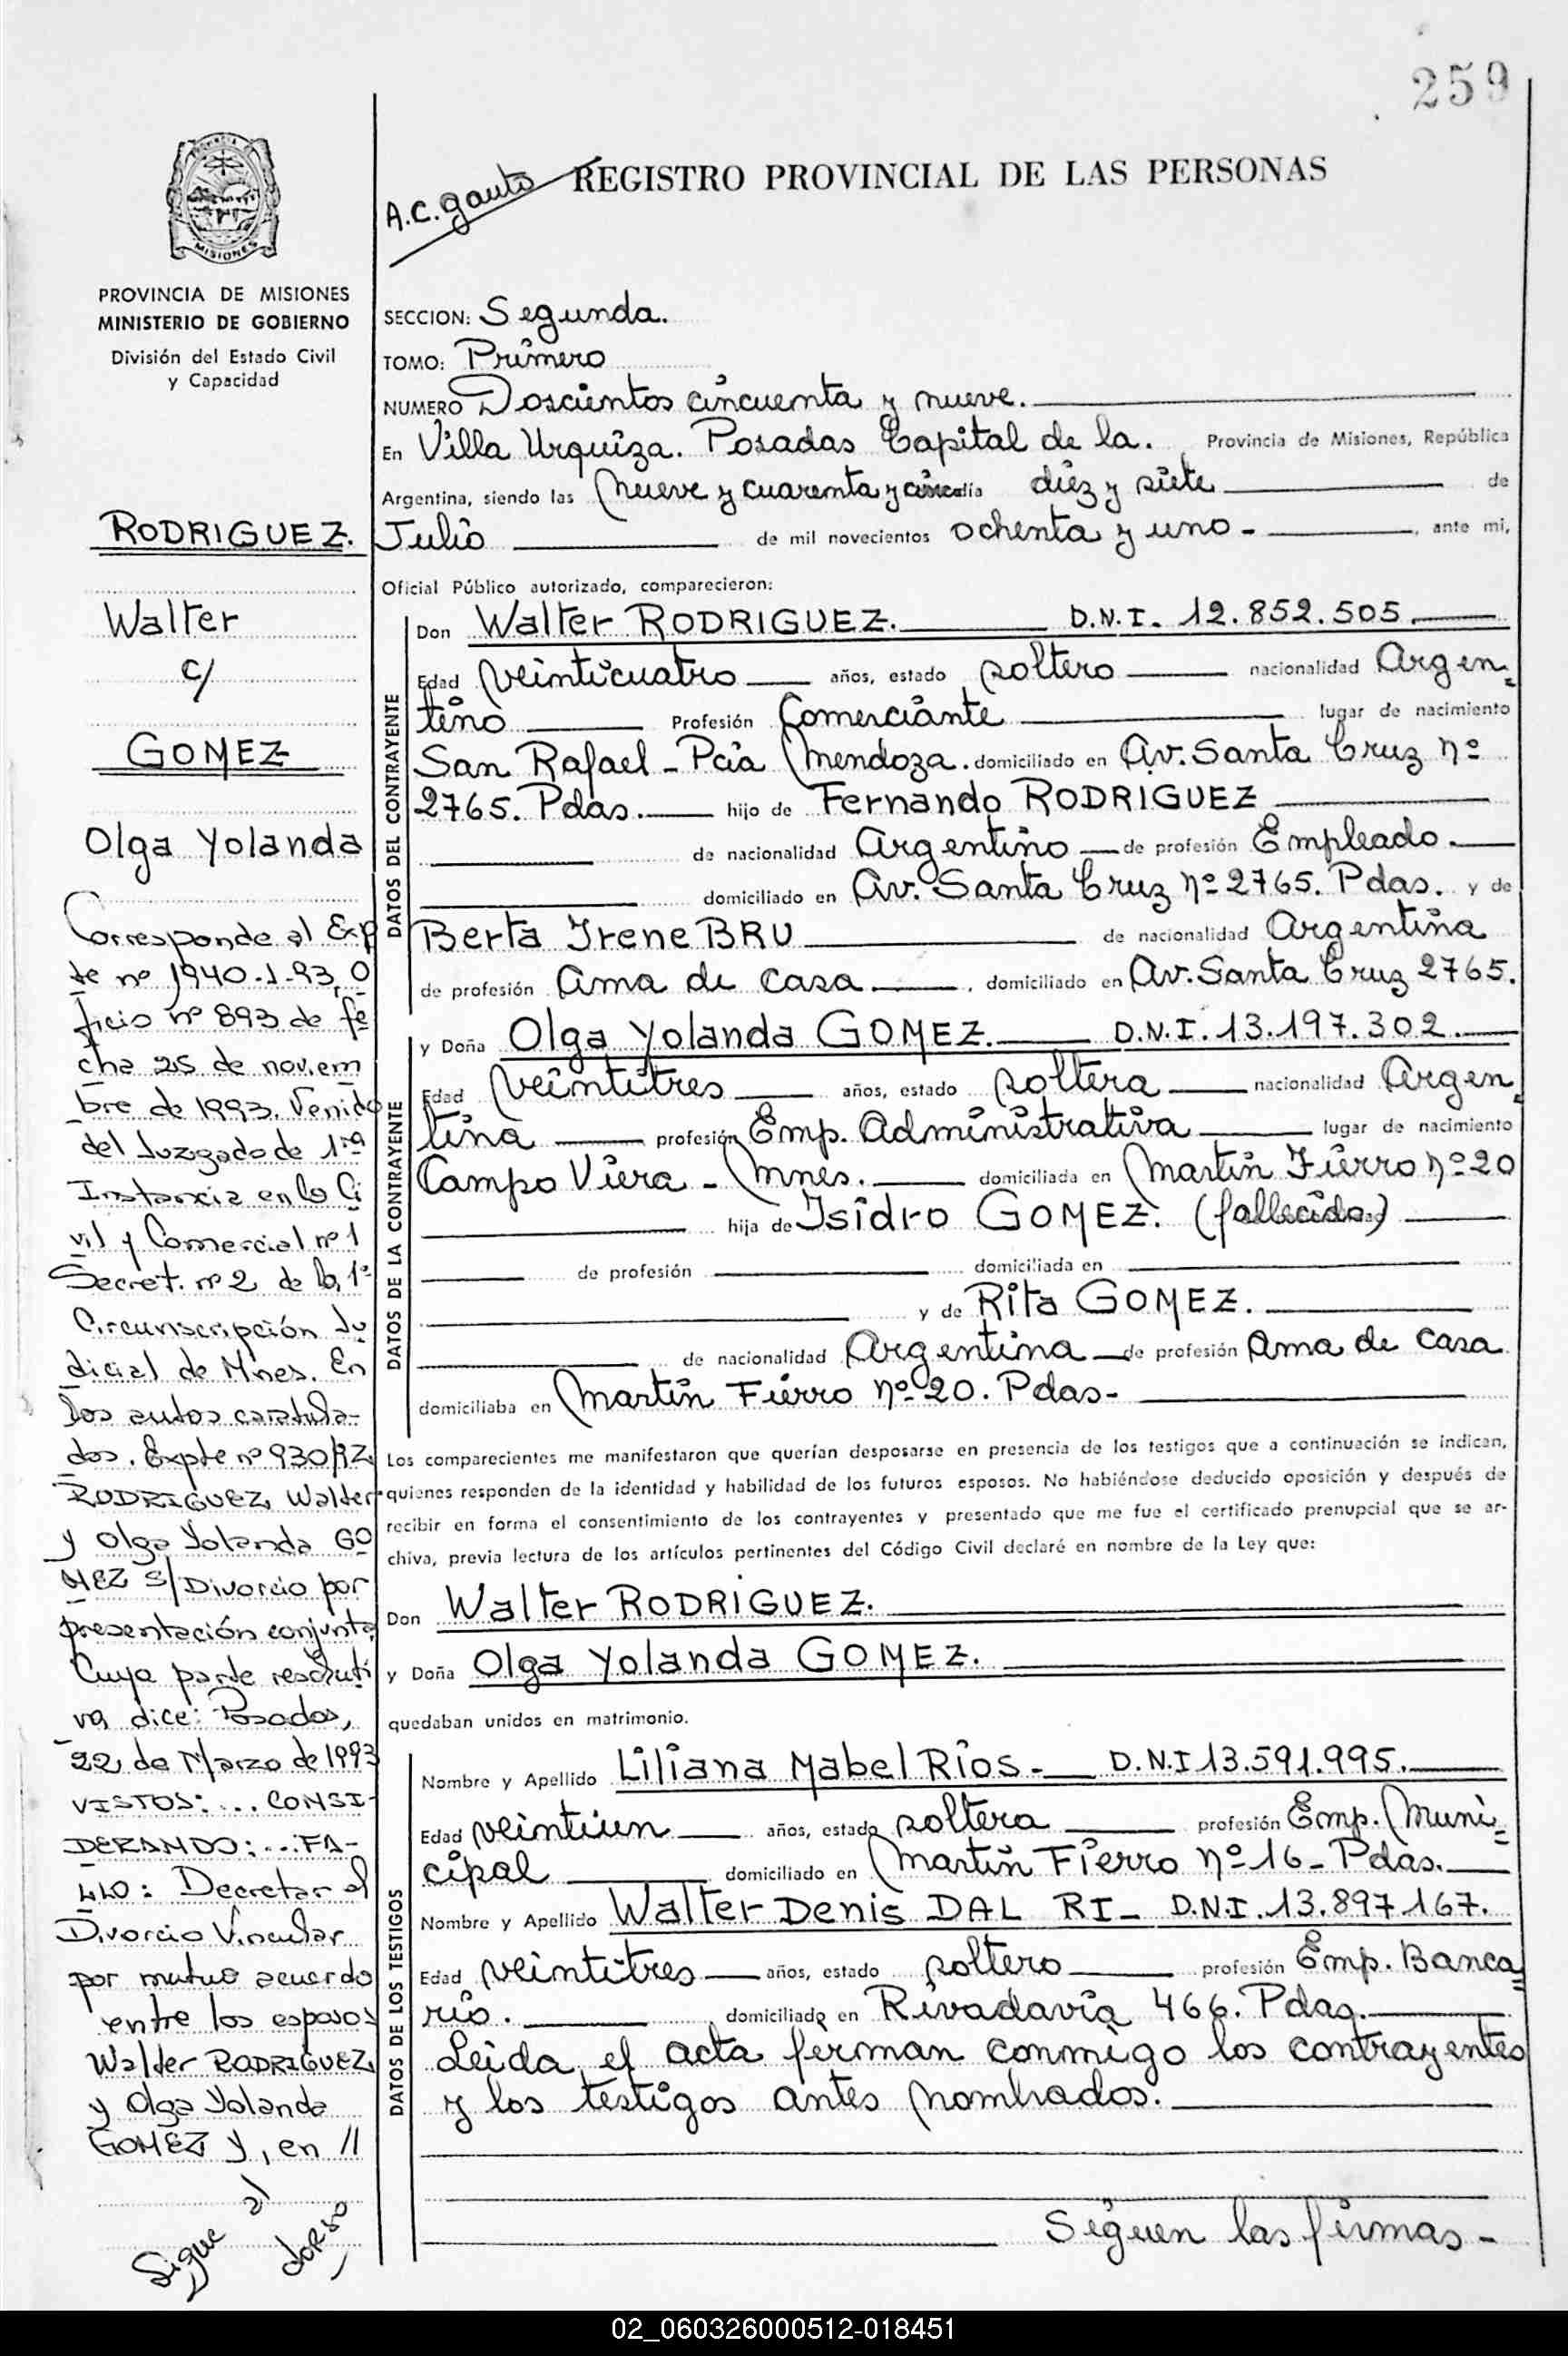 259
REGISTRO PROVINCIAL DE LAS PERSONAS
A.C. gauto
MISIONES
PROVINCIA DE MISIONES
MINISTERIO DE GOBIERNO
División del Estado Civil
y Capacidad
RODRIGUEZ.
Walter
c/
GOMEZ
Olga Yolanda
Corresponde al Exp
te nº 1940-1-93, O
ficio nº 893 de fe
cha 25 de noviem
bre de 1993. Venido
del Juzgado de 1ra
Instancia en lo Ci
vil y Comercial nº 1
Secret. nº 2 de la 1ª
Circunscripción Ju
dicial de Mnes. En
los autos caratula-
dos. Expte nº 930/92
RODRIGUEZ, Walter
y Olga Yolanda GO
MEZ s/Divorcio por
presentación conjunta
Cuya parte resoluti
va dice: Posadas,
22 de Marzo de 1993
VISTOS: ... CONSI-
DERANDO: ... FA-
LLO: Decretar el
Divorcio Vincular
por mutuo acuerdo
entre los esposos
Walter RODRIGUEZ
y Olga Yolanda
GOMEZ y, en //
Sigue al dorso
SECCION: Segunda.
TOMO: Primero
NUMERO Doscientos cincuenta y nueve.
En Villa Urquiza. Posadas Capital de la. Provincia de Misiones, República
Argentina, siendo las nueve y cuarenta y cinco día diez y siete de
Julio de mil novecientos ochenta y uno - , ante mi,
Oficial Público autorizado, comparecieron:
DATOS DEL CONTRAYENTE
Don Walter RODRIGUEZ. D.N.I. 12.852.505.
Edad veinticuatro años, estado soltero nacionalidad Argen=
tino Profesión Comerciante lugar de nacimiento
San Rafael - Pcia Mendoza. domiciliado en Av. Santa Cruz nº
2765. Pdas. hijo de Fernando RODRIGUEZ
de nacionalidad Argentino de profesión Empleado.
domiciliado en Av. Santa Cruz nº 2765. Pdas. y de
Berta Irene BRU de nacionalidad Argentina
de profesión Ama de casa. , domiciliado en Av. Santa Cruz 2765.
DATOS DE LA CONTRAYENTE
y Doña Olga Yolanda GOMEZ. D.N.I. 13.197.302.
Edad veintitres años, estado soltera nacionalidad Argen=
tina profesión Emp. Administrativa lugar de nacimiento
Campo Viera - Mnes. domiciliada en Martin Fierro nº 20
hija de Isidro GOMEZ. (fallecido)
de profesión domiciliada en
y de Rita GOMEZ.
de nacionalidad Argentina de profesión Ama de casa
domiciliaba en Martin Fierro nº 20. Pdas-
Los comparecientes me manifestaron que querían desposarse en presencia de los testigos que a continuación se indican,
quienes responden de la identidad y habilidad de los futuros esposos. No habiéndose deducido oposición y después de
recibir en forma el consentimiento de los contrayentes y presentado que me fue el certificado prenupcial que se ar-
chiva, previa lectura de los artículos pertinentes del Código Civil declaré en nombre de la Ley que:
Don Walter RODRIGUEZ.
y Doña Olga Yolanda GOMEZ.
quedaban unidos en matrimonio.
DATOS DE LOS TESTIGOS
Nombre y Apellido Liliana Mabel Rios - D.N.I 13.591.995.
Edad veintiun años, estado soltera profesión Emp. Muni=
cipal domiciliado en Martin Fierro nº 16 - Pdas.
Nombre y Apellido Walter Denis DAL RI - D.N.I. 13.897.167.
Edad veintitres años, estado soltero profesión Emp. Banca=
rio. domiciliado en Rivadavia 466. Pdas.
Leida el acta firman conmigo los contrayentes
y los testigos antes nombrados.
Siguen las firmas -
02_060326000512-018451